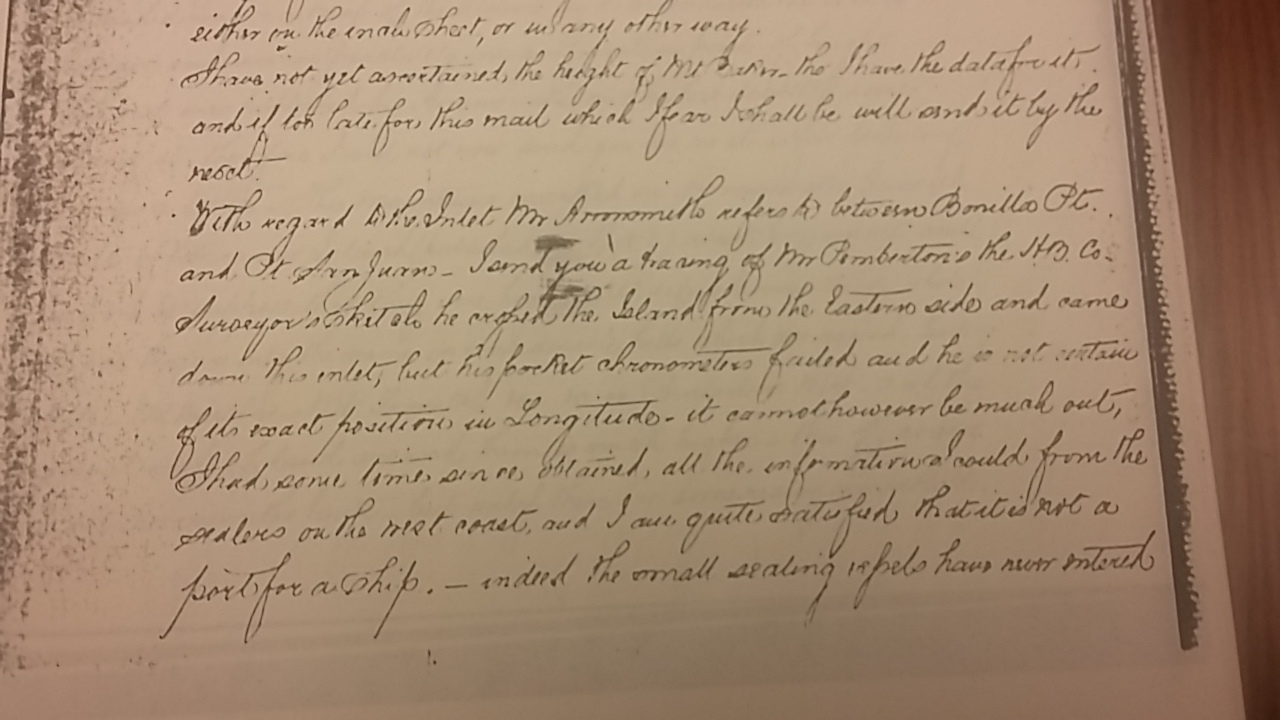 either on the inch sheet, or in any other way.
I have not yet ascertained, the height of Mt Baker - tho I have the data for it,
and if too late for this mail which I fear I shall be will send it by the
next.
With regard to the Inlet Mr Arrowsmith refers to between Bonilla Pt.
and Pt San Juan - I send you a tracing of Mr Pemberton's the H.B. Co.
Surveyor's Sketch he crossed the Island from the Eastern side and came
down this inlet, but his pocket chronometers failed and he is not certain
of its exact position in Longitude - it cannot however be much out,
I had some time since obtained, all the information I could from the
sealers on the west coast, and I am quite satisfied that it is not a
port for a Ship. - indeed the small sealing vessels have never entered